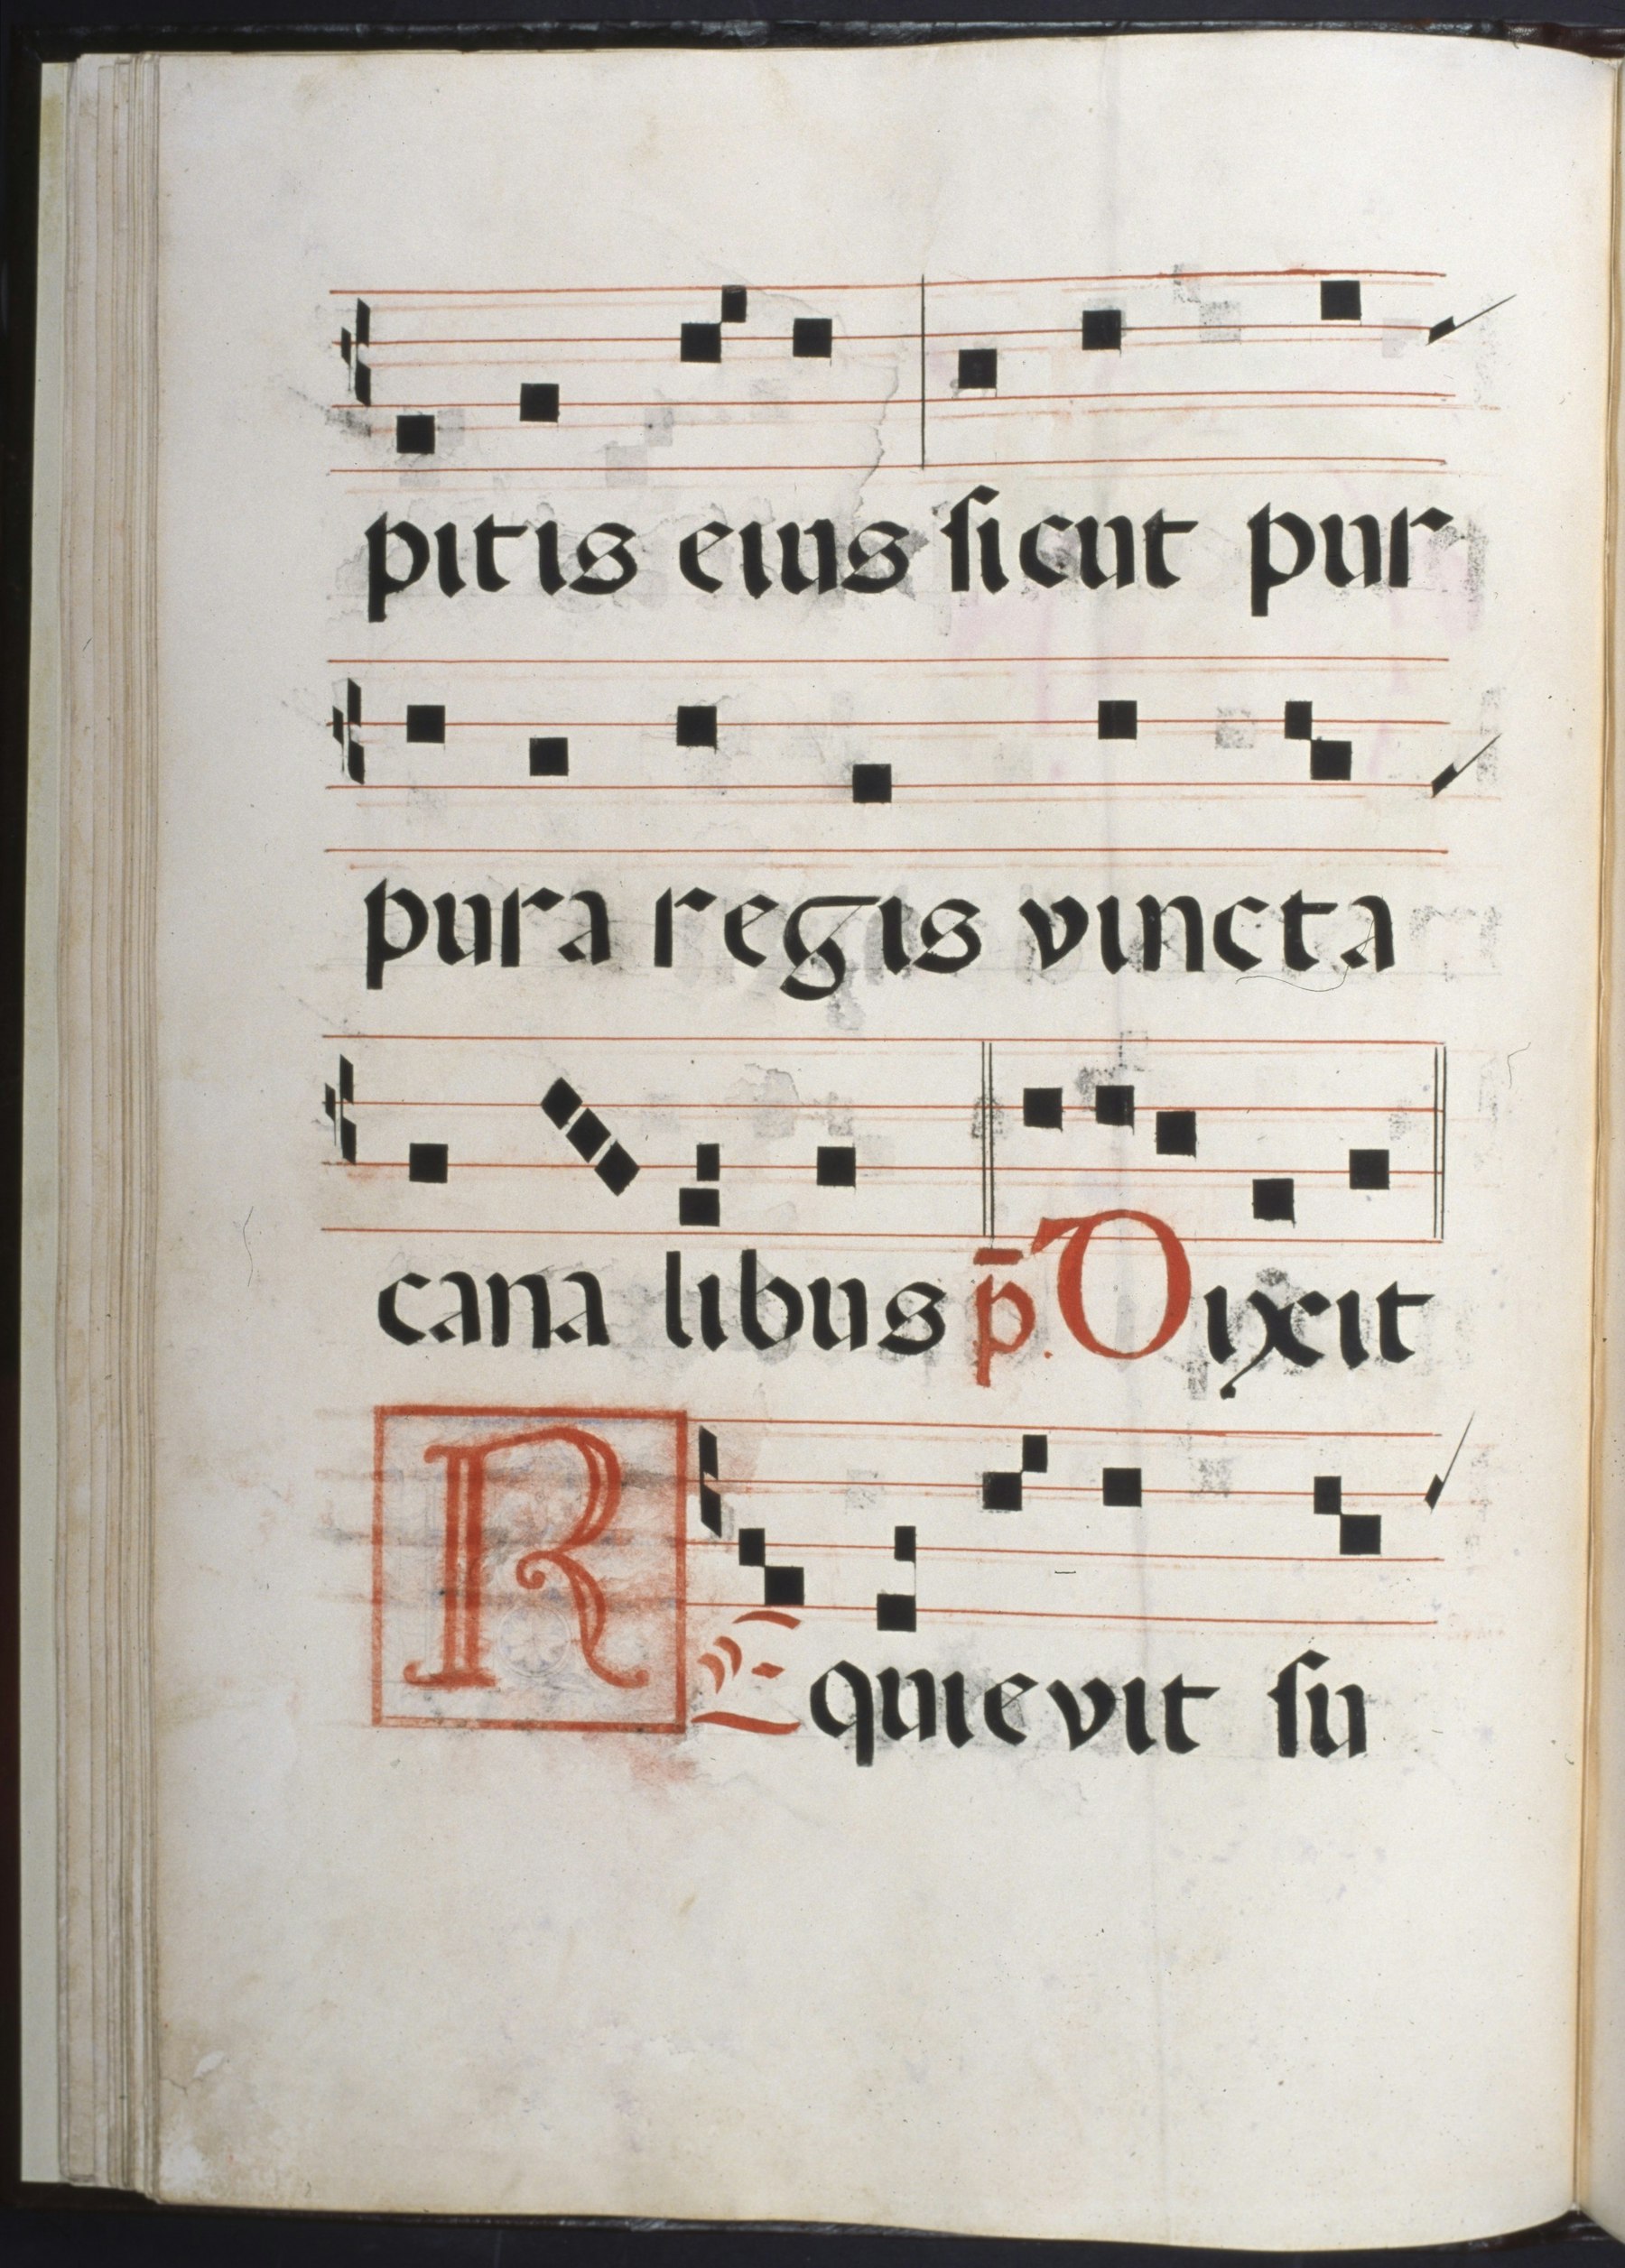 pitis eius ſicut pur
pura regis vincta
cana libus p̄. Dixit
REquievit ſu